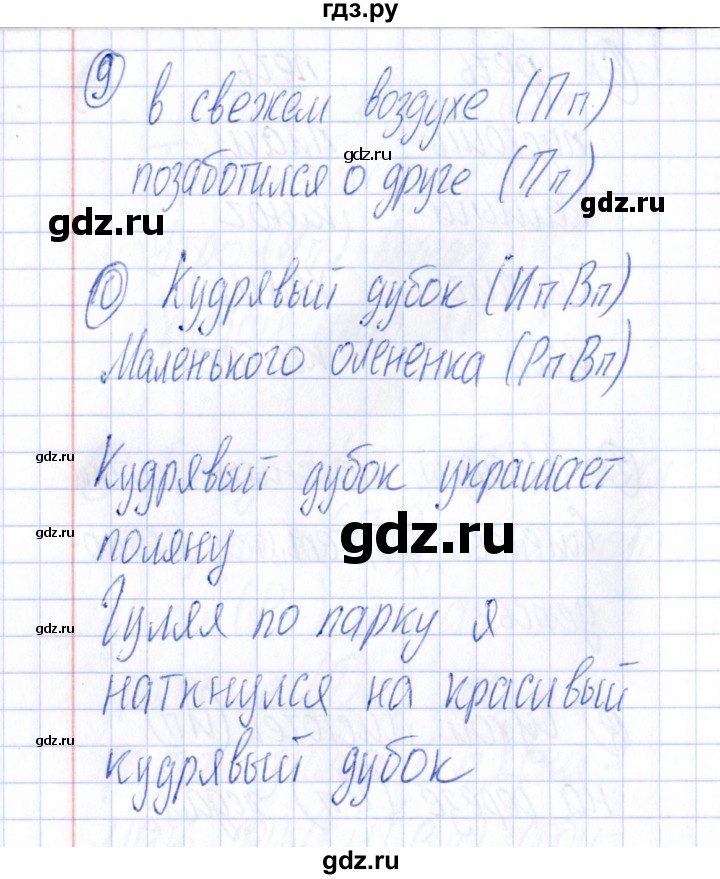 гдз.ру
9 в свежем воздухе (Пп)
gdz.ru
позаботился о друге (Пп)
gdz.ru
gdz.ru
10 Кудрявый дубок (Ип Вп)
Маленького олененка (Рп Вп)
gdz.ru
Кудрявый дубок украшает
gdz.ru
gdz.ru
поляну
Гуляя по парку я
gdz.ru
наткнулся на красивый
gdz.ru
кудрявый дубок
gdz.ru